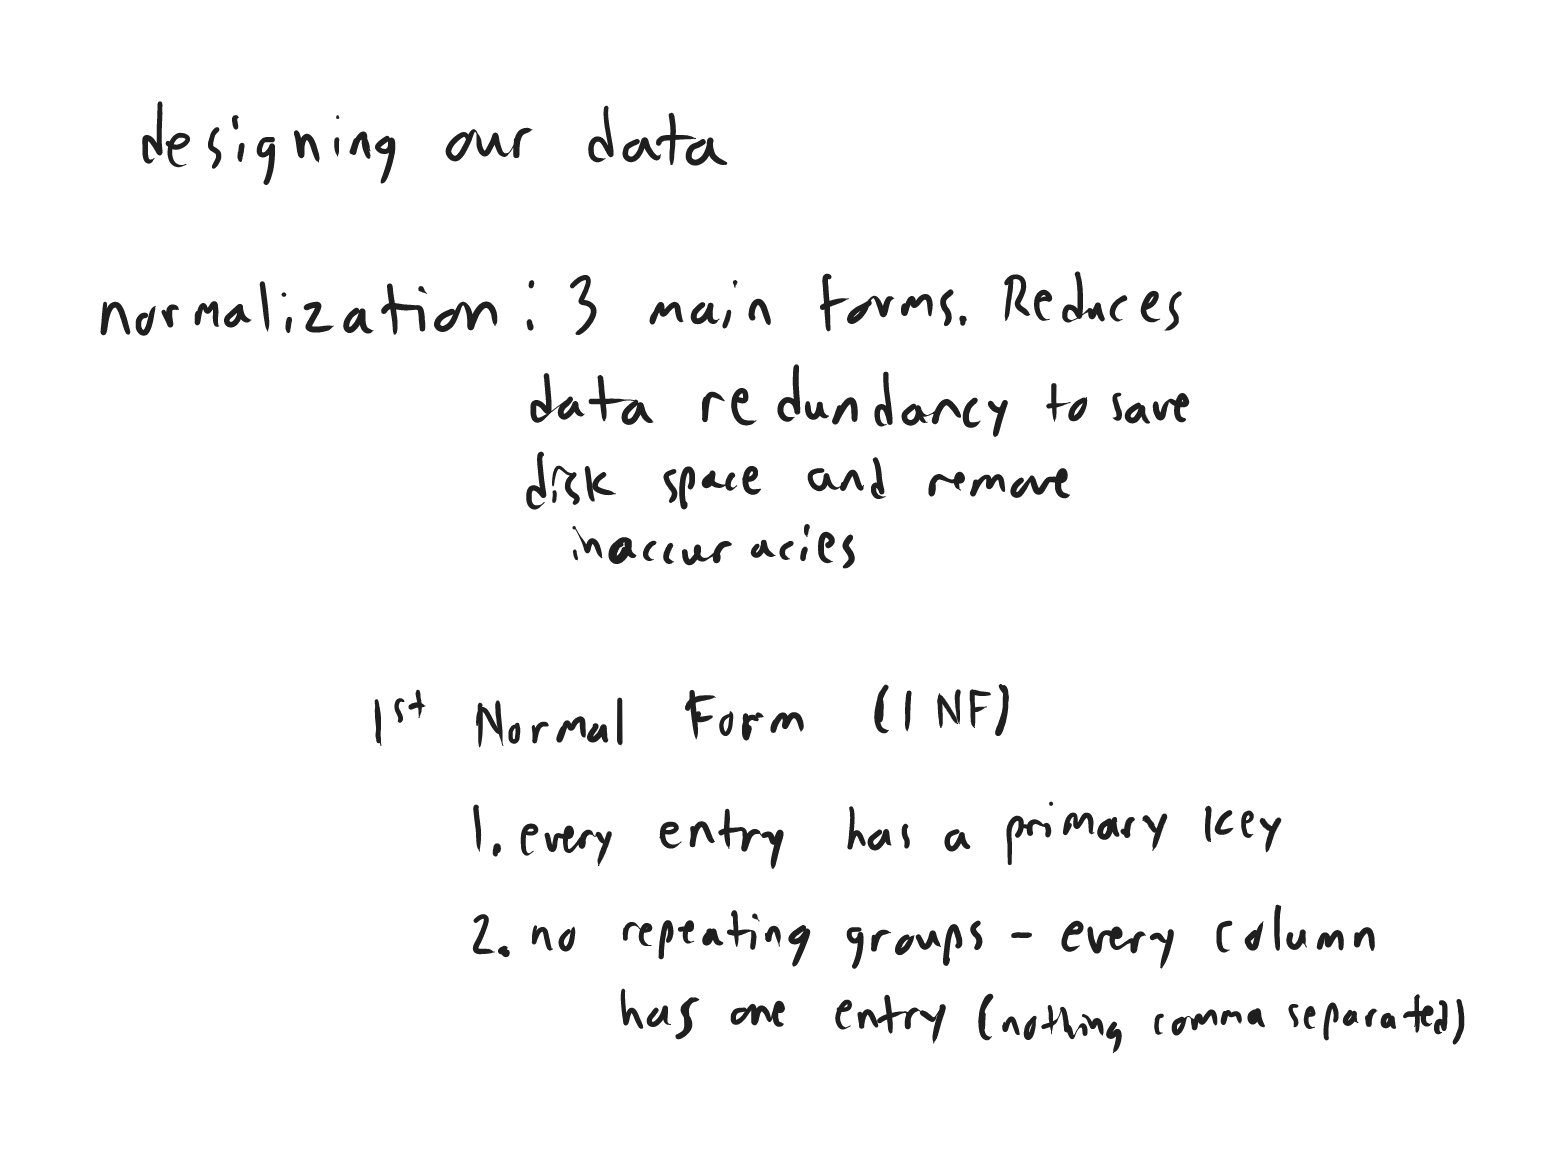 designing our data
normalization: 3 main forms. Reduces
data redundancy to save
disk space and remove
inaccuracies
1st Normal Form (1NF)
1. every entry has a primary key
2. no repeating groups - every column
has one entry (nothing comma separated)